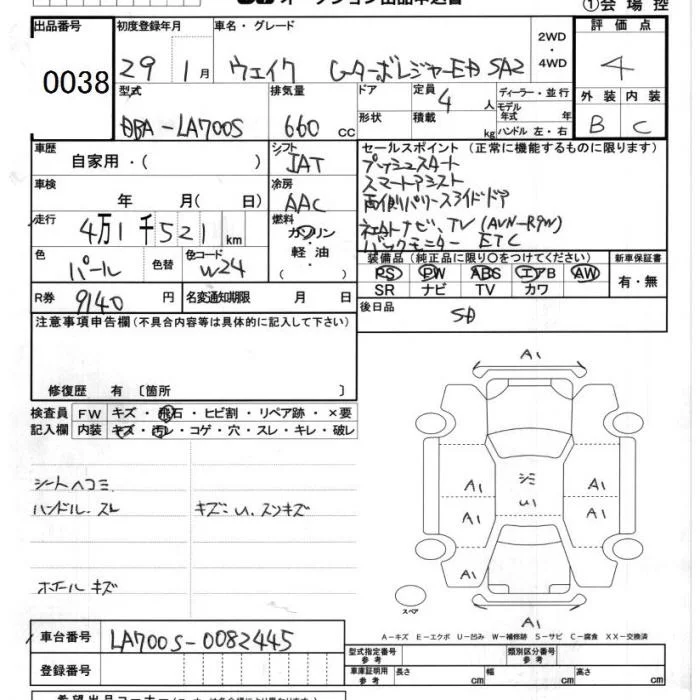 オークション出品申込書
①会場控
出品番号
0038
初度登録年月
29 1月
車名・グレード
ウェイク GターボレジャーED SA2
2WD・4WD
評価点
4
外装 内装
B C
型式
DBA-LA700S
排気量
660 cc
ドア
形状
定員 4 人
積載 kg
ディーラー・並行
モデル年式 年
ハンドル 左・右
車歴
自家用・( )
シフト
IAT
セールスポイント (正常に機能するものに限ります)
プッシュスタート
スマートアシスト
両側パワースライドドア
ネオトナビ、TV (AVN-R9W)
バックモニター ETC
車検
年 月( 日)
冷房
AAC
走行
4万1千521km
燃料
ガソリン・軽油・
色
パール
色替
色コード
W24
装備品 (純正品に限り○をつけてください)
PS PW ABS エアB AW
SR ナビ TV カワ
新車保証書
有・無
R券
9140円
名変通知期限 月 日
後日品
SD
注意事項申告欄 (不具合内容等は具体的に記入して下さい)
修復歴 有 〔箇所 〕
検査員記入欄
FW キズ・飛石・ヒビ割・リペア跡・×要
内装 キズ・汚レ・コゲ・穴・スレ・キレ・破レ
シートヘコミ
ハンドル.スレ
キズ=U.スンキズ
ホイールキズ
A1
シミ
U1
A1 A1
A1 A1
A1
A1
スペア
A-キズ E-エクボ U-凹み W-補修跡 S-サビ C-腐食 XX-交換済
車台番号
LA700S-0082445
登録番号
型式指定番号 参考
類別区分番号 参考
自動車検査証 参考
長さ cm 幅 cm 高さ cm
希望出品コーナー